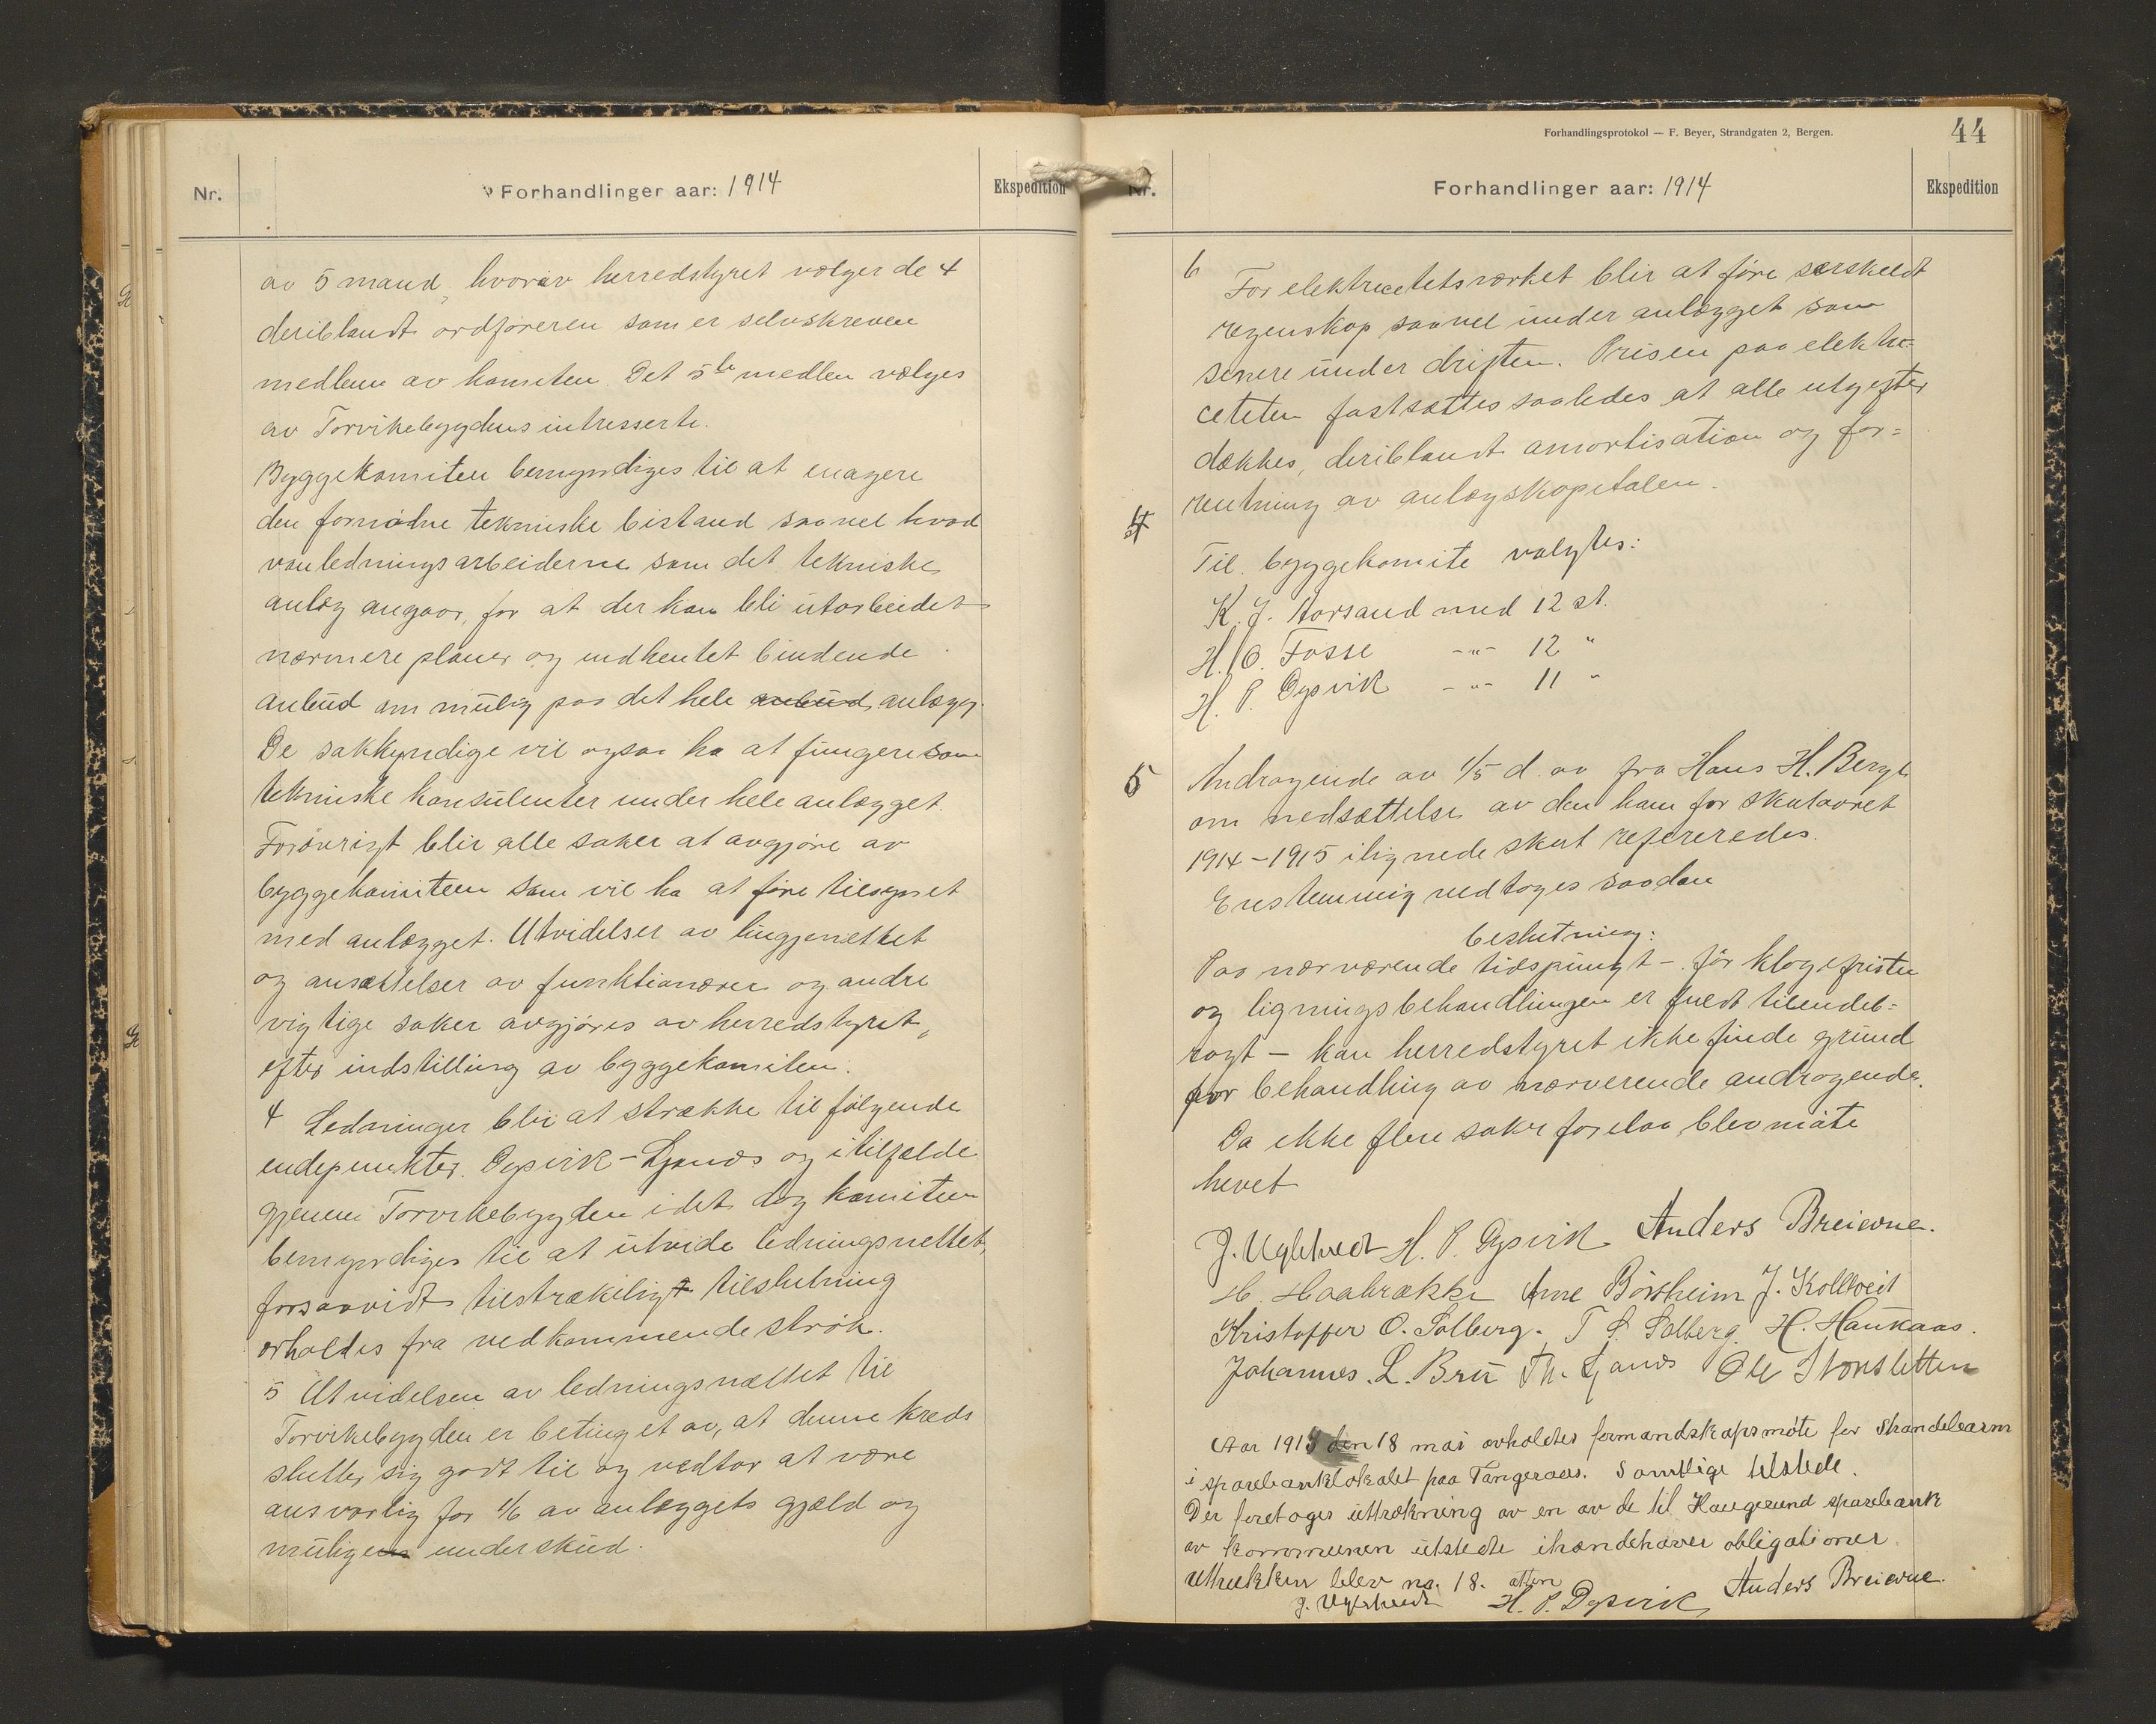 Nr.
Forhandlinger aar: 1914
Ekspedition
av 5 mand, hvorav herredstyret vælger de 4
deriblandt ordføreren som er selvskreven
medlem av komiten. Det 5te medlem vælges
av Torvikebygdens intresserte.
Byggekomiten bemyndiges til at engagere
den fornødne tekniske bistand saavel hvad
vanledningsarbeiderne som det tekniske
anlæg angaar, for at der kan bli utarbeidet
nærmere planer og indhentet bindende
anbud om mulig paa det hele anbud anlægg.
De sakkyndige vil ogsaa ha at fungere som
tekniske konsulenter under hele anlægget.
Forøvrigt blir alle saker at avgjøre av
byggekomiteen som vil ha at føre tilsynet
med anlægget. Utvidelser av lingjenettet
og ansættelser av funktionærer og andre
vigtige saker avgjøres av herredstyret,
efter indstilling av byggekomiten.
4 Ledninger blir at strække til følgende
endepunkter. Dysvik - Ljones og i tilfælde
gjennem Torvikebygden idet dog komiteen
bemyndiges til at utvide ledningsnettet,
forsaavidt tilstrækelig tilslutning
erholdes fra vedkommende strøk.
5 Utvidelsen av ledningsnættet til
Torvikebygden er betinget av, at denne kreds
slutter sig godt til og vedtar at være
ansvarlig for 1/6 av anlæggets gjæld og
muligens underskud.
Forhandlingsprotokol — F. Beyer, Strandgaten 2, Bergen.
44
Nr.
Forhandlinger aar: 1914
Ekspedition
6 For elektrecetetsværket blir at føre særskeldt
regnskap saavel under anlægget som
senere under driften. Prisen paa elektre-
ceteten fastsættes saaledes at alle utgifter
dækkes, deriblandt amortisation og for=
rentning av anlægskapitalen.
4
Til byggekomite valgtes:
K. J. Aarsand med 12 st.
H. O. Fosse -"- 12 "
H. P. Dysvik -"- 11 "
5 Andragende av 1/5 d. av fra Hans H. Berge
om nedsættelse av den ham for skataaret
1914-1915 ilignede skat refereredes.
Enstemmig vedtoges saadan
beslutning:
Paa nærværende tidspungt - før klagefristen
og ligningsbehandlingen er fuldt tilendeb=
ragt - kan herredstyret ikke finde grund
for behandling av nærverende andragende.
Da ikke flere saker forelaa blev møte
hevet
J. Uglehvedt H. P. Dysvik Anders Breievne.
H. Haabrække Arne Børsheim J. Kolltveit
Kristoffer O. Solberg. T. S. Solberg. H. Haukaas.
Johannes. L. Bru Th. Ljones Ole Storsletten
Aar 1914 den 18 mai avholdtes formandskapsmøte for Strandebarm
i sparebanklokalet paa Tangeraas. Samtlige tilstede.
Der foretoges uttrækning av en av de til Haugesund sparebank
av kommunen utstedte ihændehaver obligationer.
Uttrukken blev no. 18. atten
J. Uglehvedt H. P. Dysvik Anders Breievne.